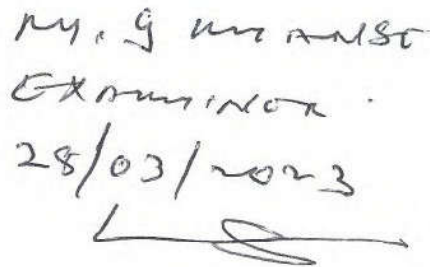 M. G
EXAMINER.
28/03/2023